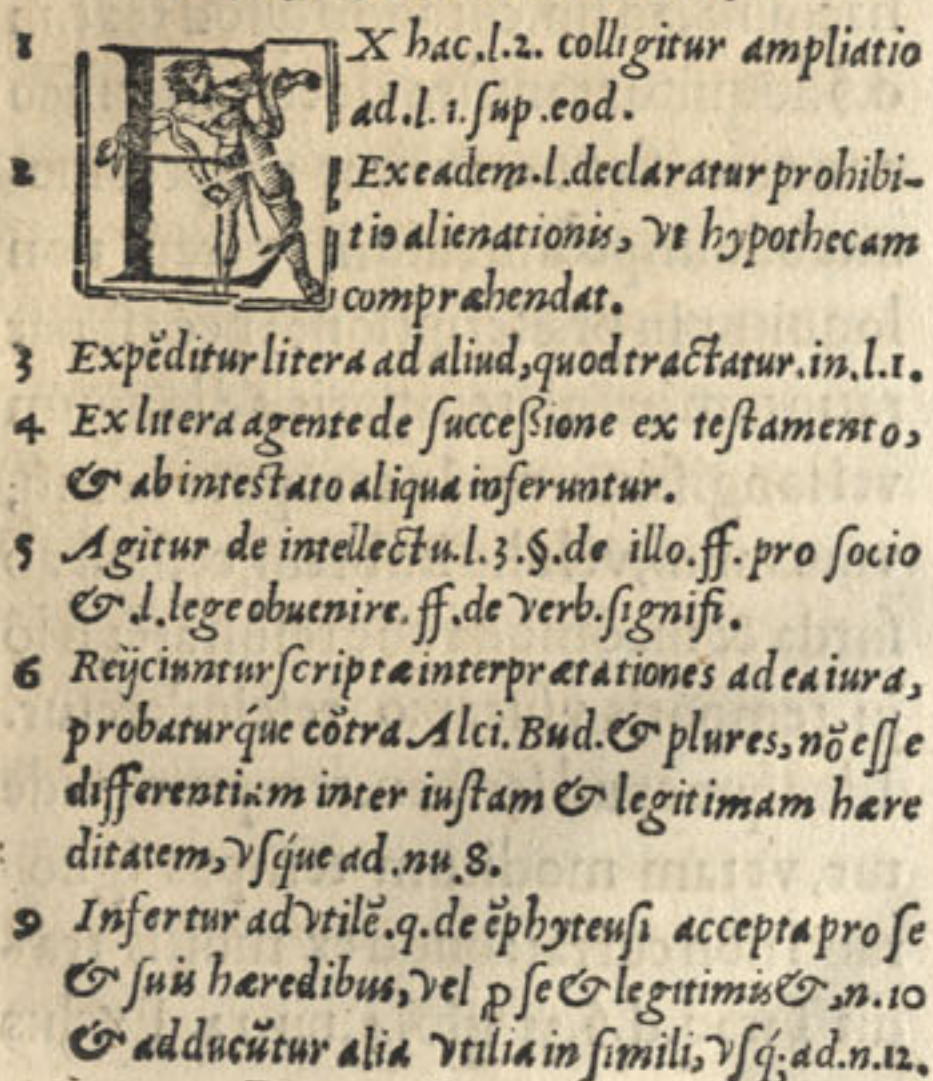 1 EX hac.l.2. colligitur ampliatio
ad.l. 1. ſup .eod.
2 Ex eadem.l.declaratur prohibi-
tio alienationis, vt hypothecam
compræhendat.
3 Expĕditur litera ad aliud, quod tractatur.in.l.1.
4 Ex litera agente de ſucceſsione ex teſtamento,
& ab inteſtato aliqua inferuntur.
5 Agitur de intellectu.l.3.§.de illo.ff.pro ſocio
& .l.lege obuenire.ff.de verb.ſignifi.
6 Reijciuntur ſcriptæ interprætationes ad ea iura,
probaturq́ue cõtra Alci. Bud. & plures, nõ eſſe
differentiam inter iuſtam & legitimam hære
ditatem, vſq́ue ad.nu.8.
9 Infertur ad vtilĕ.q.de ĕphyteuſi accepta pro ſe
& ſuis hæredibus, vel ꝓ ſe & legitimis & ,n.10
& adducŭtur alia vtilia in ſimili, vſq́;ad.n.12.